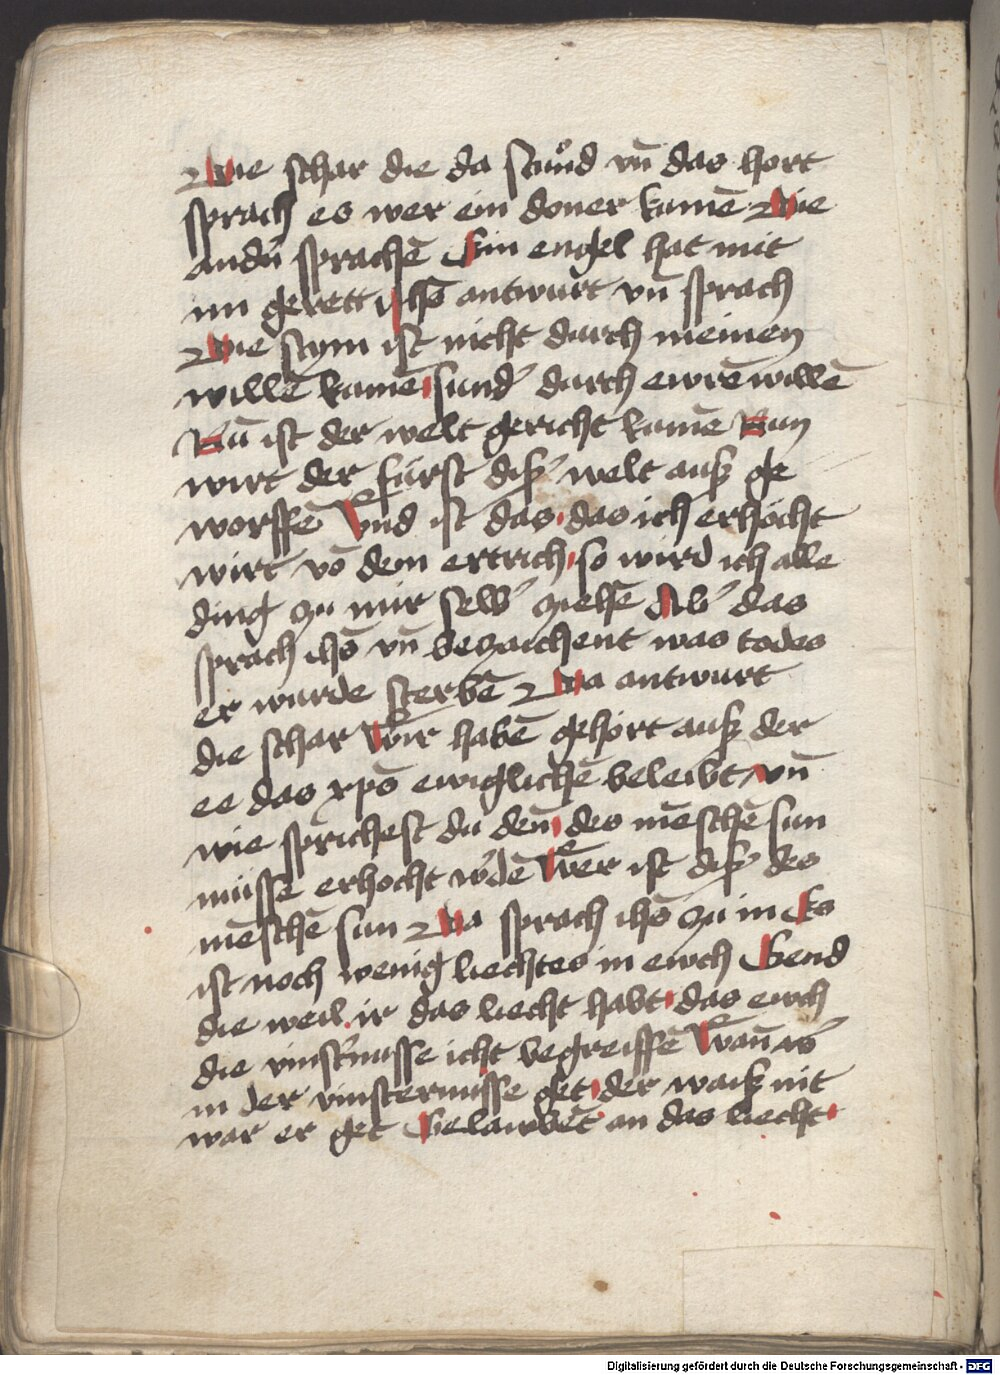 Die schar die da stuͦnd vn̄ das hort
sprach es wer ein doner kumē Die
andn̄ sprachē Ein engel hat mit
im gerett ihs̄ antwurt vn̄ sprach
Die stym ist nicht durch meinen
willē kumē sund' durch ewrē willē
Nū ist der welt gericht kumē Nun
wirt der fürst diß' welt auß ge
worffē Vnd ist das das ich erhöcht
wirt vō dem ertrich so wird ich alle
ding zu mir selb' ziehē Ab' das
sprach ihs̄ vn̄ bezaichent was todes
er wurde sterbē Da antwurt
die schar Wir habē gehört auß der
ee das xp̄s ewiglichē beleibt vn̄
wie sprichest du den̄ des mēschē sun
müsse erhocht w'dē Wer ist diß' des
mēschē sun Da sprach ihs̄ zu in Es
ist noch wenig liechtes in ewch Gend
die weil ir das liecht habt das ewch
die vinst'nusse icht begreiffē Wan̄ w'
in der vinsternusse get der waiß nit
war er get Gelawbēt an das liecht
Digitalisierung gefördert durch die Deutsche Forschungsgemeinschaft - DFG